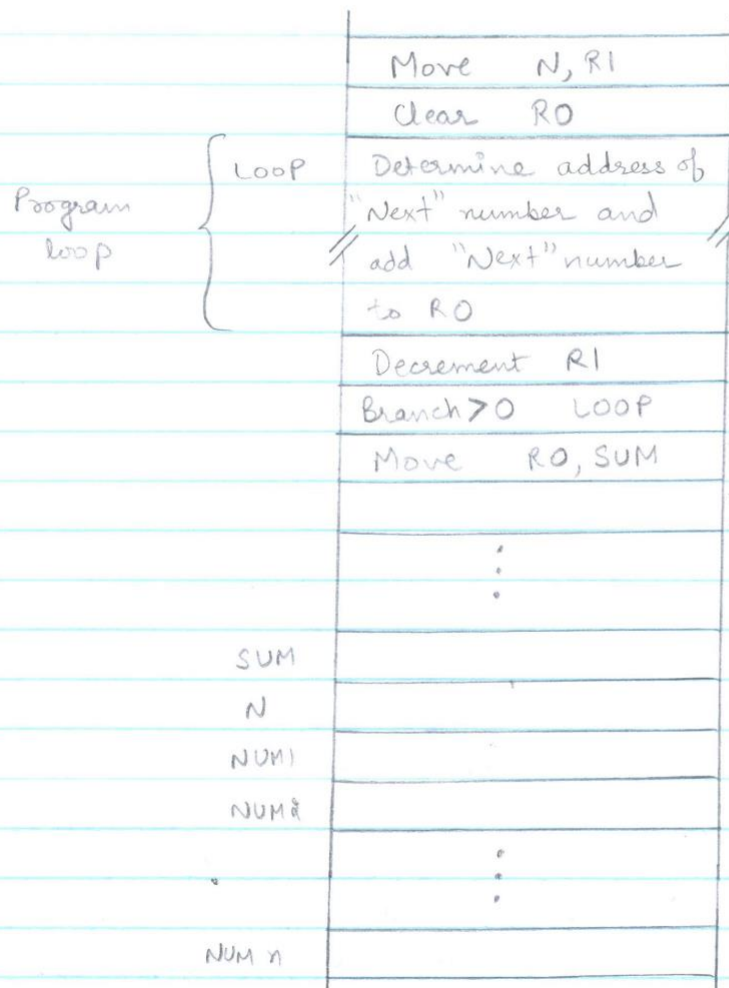 Move N, R1
Clear R0
LOOP Determine address of
Program "Next" number and
loop add "Next" number
to R0
Decrement R1
Branch>0 LOOP
Move R0, SUM
SUM
N
NUM1
NUM2
NUM n